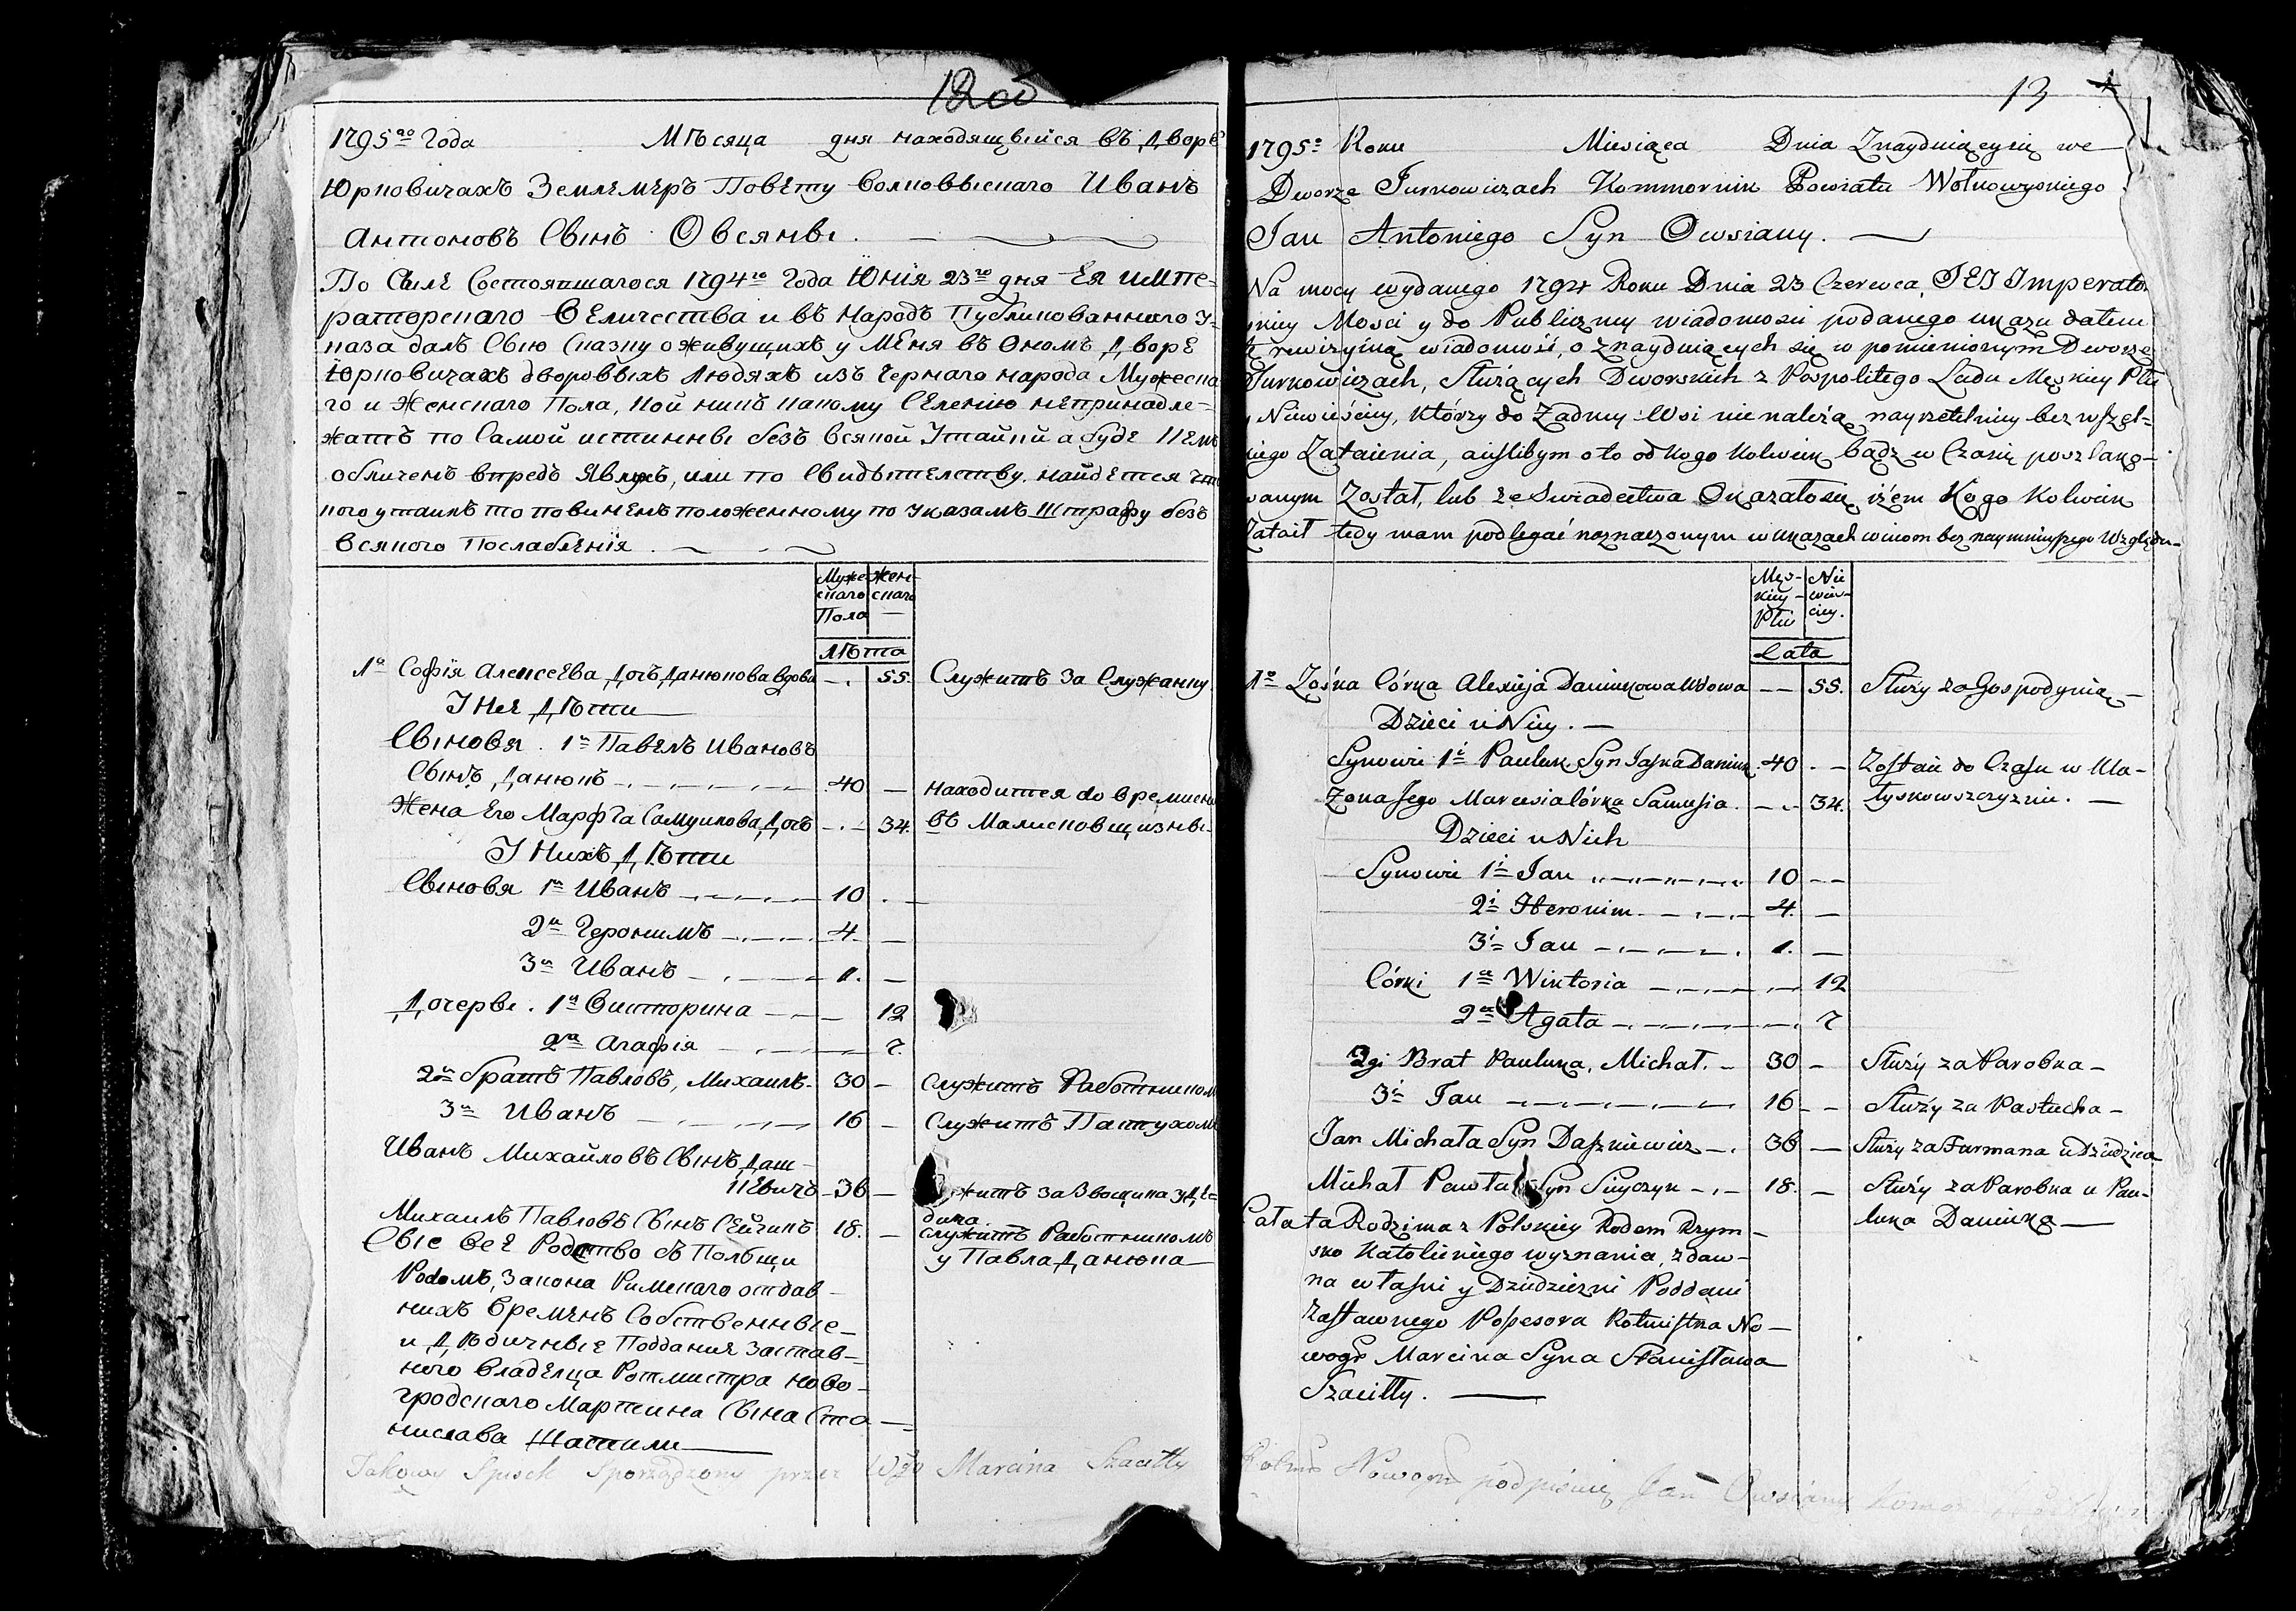 12 об
1795го Года Мѣсяца дня находящыйся въ Дворѣ
Юрковичахъ Землемеръ Повету Волковыскаго Иванъ
Антоновъ Сынъ Овсяны.
По Силе Состоявшагося 1794го Года Юнія 23го дня Ея Импе-
раторскаго Величества и въ Народъ Публикованнаго У-
каза далъ Сѣю Сказку о живущихъ у меня въ Ономъ Дворе
Юрковичахъ дворовыхъ Людяхъ изъ Чернаго народа Мужеска-
го и Женскаго Пола, кой никъ какому Селению непринадле-
жатъ по Самой истинны безъ всякой Утайки а буде кемъ
обличенъ впредь Явлусь, или по Свидѣтелству найдется что
кого утаилъ то повиненъ положенному по Указамъ Штрафу безъ
Всякого Послабленія.
Муже- скаго Пола Жен- скаго
Лѣта
1а Софія Алексеева Дочь Данюкова вдова — 55. Служитъ За Служанку
У Нее Дѣти
Сыновя. 1й Павелъ Ивановъ
Сынъ Данюкъ 40 — находится до времени
Жена Его Марфѣа Самуилова Дочь — 34. въ Малисковщизны
У Нихъ Дѣти
Сыновя 1й Иванъ 10
2й Геронимъ 4. —
3й Иванъ 1. —
Дочеры. 1я Викторина — 12
2я Агафія — 7.
2й братъ Павловъ, Михаилъ. 30 — Служитъ Работником
3й Иванъ 16 — Служитъ Пастухомъ
Иванъ Михайловъ Сынъ Даш-
кевичъ 36 — житъ за Звощика у Дѣ-
дича
Михаилъ Павловъ Сынъ Сейчикъ 18. — служитъ Работникомъ
у Павла Данюка
Сые все Родство съ Польщи
Родомъ, Закона Римскаго отдав-
нихъ Временъ Собственные
и Дѣдичные Подданые Застав-
ного Владелца Ротмистра ново-
гродскаго Мартина Сына Ста-
нислава Шатили
Takowy Spisek Sporządzony przez Wgo Marcina Szacitty
13
1795o Roku Miesiąca Dnia Znayduiącysię we
Dworze Jurkowiczach Kommornik Powiatu Wołkowyskiego
Jan Antoniego Syn Owsiany.
Na mocy wydanego 1794 Roku Dnia 23 Czerwca, JEJ Imperator
skiey Mości y do Publiczney wiadomości podanego ukazu dałem
tę rewizyiną wiadomość, o znayduiących się w pomienionym Dworze
Jurkowiczach, Służących Dworskich z Pospolitego Ludu Męskiey Płci
y Niewieściey, którzy do Żadney Wsi nie należą nayrzetelniey bez wszel-
kiego Zataienia, a ieslibym o to od kogo kolwiek bądź w Czasię poszlako-
wanym Został, lub ze Swiadectwa Okazałosię iżem Kogo Kolwiek
Zataił tedy mam podlegać naznaczonym w ukazach winom bez naymnieyszego Względu
Męs- kiey Płci Nie wieś- ciey.
Lata
1o Zośka Córka Alexieja Daniukowa Wdowa — 55. Służy za Gospodynią
Dzieci u Niey.
Synowie 1i Pauluk Syn Jaśka Daniuk 40 — Zostaie do Czasu w Ma-
Żona Jego Marcusia Córka Samusia. — 34. łyskowszczyznie.
Dzieci u Nich
Synowie 1i Jan 10
2i Heronim 4.
3i Jan 1.
Córki 1a Wiktoria 12
2a Agata 7
2gi Brat Pauluka, Michał. 30 — Służy za Parobka
3i Jan 16 — Służy za Pastucha
Jan Michała Syn Daszkiewicz 36 — Służy za Furmana u Dziedzica
Michał Pawła Syn Sieyczyk 18. — Służy za Parobka u Pau-
luka Daniuka
Cała ta Rodzina z Polskiey Rodem Rzym-
sko Katolickiego wyznania, zdaw-
na własni y Dziedziczni Poddani
Zastawnego Possesora Rotmistrza No-
wogr Marcina Syna Stanisława
Szacitty.
Rotmo Nowogro podpisuię Jan Owsiany Komor